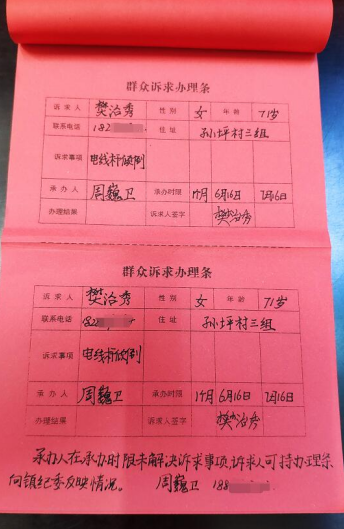 群众诉求办理条
诉求人 樊治秀 性别 女 年龄 71岁
联系电话 182 住址 孙坪村三组
诉求事项 电线杆倾倒
承办人 周巍卫 承办时限 1个月 6月16日 7月16日
办理结果 诉求人签字 樊治秀
群众诉求办理条
诉求人 樊治秀 性别 女 年龄 71岁
联系电话 182 住址 孙坪村三组
诉求事项 电线杆倾倒
承办人 周巍卫 承办时限 1个月 6月16日 7月16日
办理结果 诉求人签字 樊治秀
承办人在承办时限未解决诉求事项,诉求人可持办理条
向镇纪委反映情况。 周巍卫 188